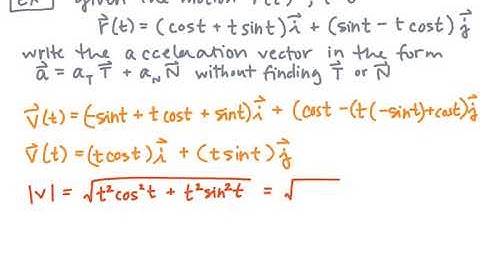 Ex given the motion
r⃗(t) = (cost + t sint) i⃗ + (sint - t cost) j⃗
write the acceleration vector in the form
a⃗ = a_T T⃗ + a_N N⃗ without finding T⃗ or N⃗
v⃗(t) = (-sint + t cost + sint) i⃗ + (cost - (t(-sint) + cost) j⃗
v⃗(t) = (t cost) i⃗ + (t sint) j⃗
|v| = √(t²cos²t + t²sin²t) = √